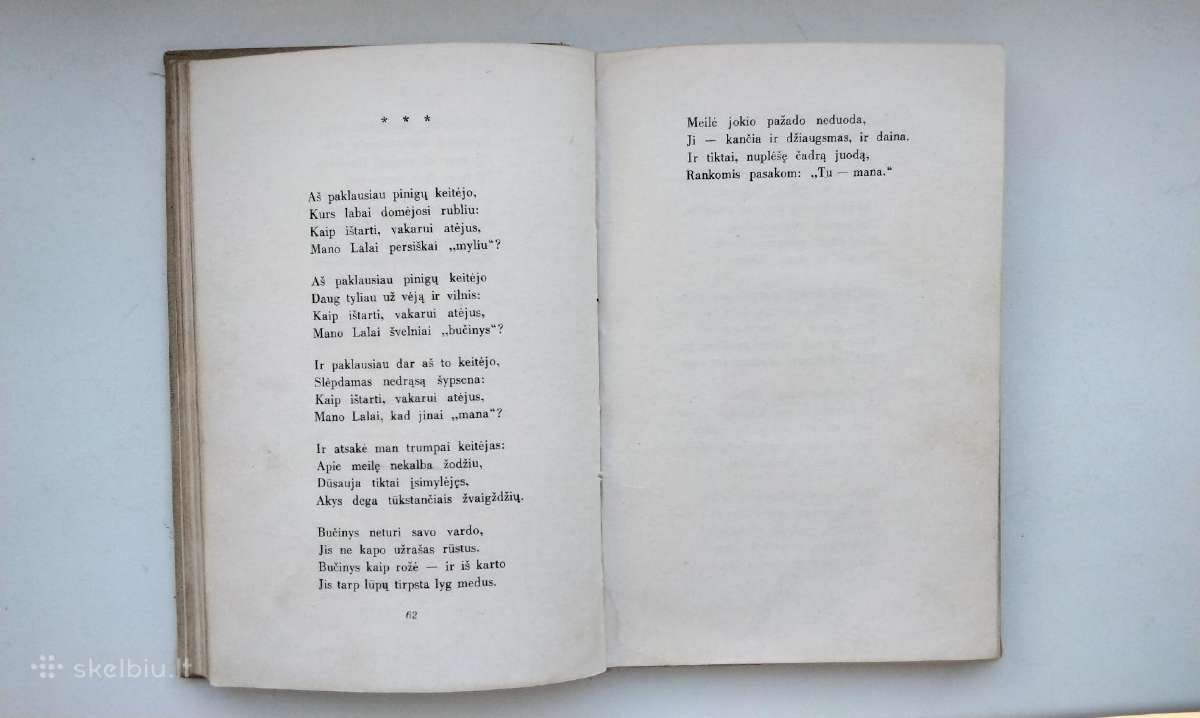 * * *
Aš paklausiau pinigų keitėjo,
Kurs labai domėjosi rubliu:
Kaip ištarti, vakarui atėjus,
Mano Lalai persiškai „myliu“?
Aš paklausiau pinigų keitėjo
Daug tyliau už vėją ir vilnis:
Kaip ištarti, vakarui atėjus,
Mano Lalai švelniai „bučinys“?
Ir paklausiau dar aš to keitėjo,
Slėpdamas nedrąsą šypsena:
Kaip ištarti, vakarui atėjus,
Mano Lalai, kad jinai „mana“?
Ir atsakė man trumpai keitėjas:
Apie meilę nekalba žodžiu,
Dūsauja tiktai įsimylėjęs,
Akys dega tūkstančiais žvaigždžių.
Bučinys neturi savo vardo,
Jis ne kapo užrašas rūstus.
Bučinys kaip rožė — ir iš karto
Jis tarp lūpų tirpsta lyg medus.
62
Meilė jokio pažado neduoda,
Ji — kančia ir džiaugsmas, ir daina.
Ir tiktai, nuplėšę čadrą juodą,
Rankomis pasakom: „Tu — mana.“
skelbiu.lt